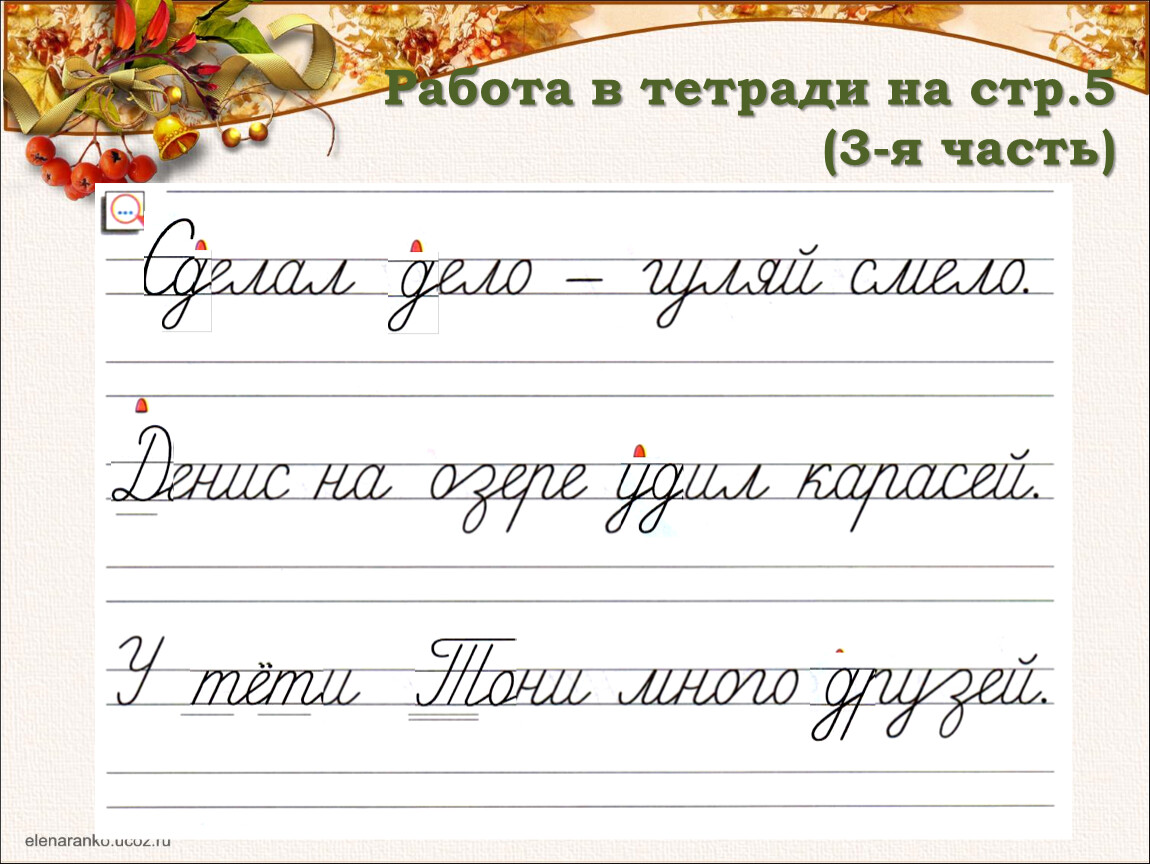 Работа в тетради на стр.5
(3-я часть)
Сделал дело – гуляй смело.
Денис на озере удил карасей.
У тёти Тони много друзей.
elenaranko.ucoz.ru